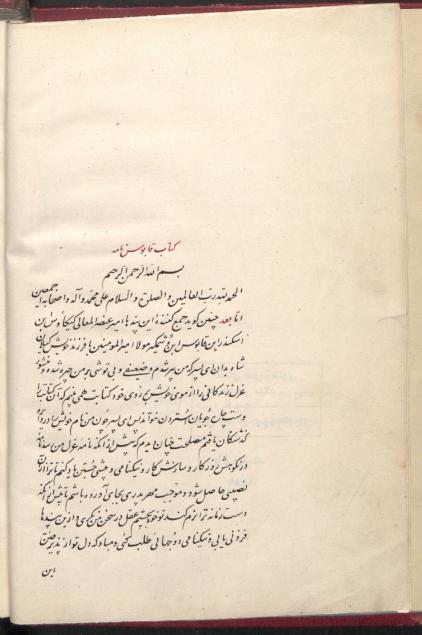 کتاب قابوسنامه
بسم الله الرحمن الرحیم
الحمد لله رب العالمین و الصلوة و السلام علی محمد و آله و اصحابه اجمعین
اما بعد چنین گوید جمع کنندهٔ این پندها امیر عنصر المعالی کیکاوس بن
اسکندر ابن قابوس ابن وشمگیر مولا امیر المومنین با فرزند خویش کیلان
شاه بدان ای پسر که من پیر شدم و ضعیفی و بی توشی بر من چیره شد و منشور
عزل زندگانی را از موی خویش بروی خود کتابت همی بینم که آن کتابت را
دست چاره جویان ستردن نتواند پس ای پسر چون من نام خویش در دایره
گذشتگان یافتم مصلحت چنان دیدم که پیش از آنکه نامه عزل بمن رسد نامه
در نکوهش روزگار و سازش کار و نیکنامی و بیشی جستن یاد کنم تا ترا از آن
نصیبی حاصل شود و موجب مهر پدری بجای آورده باشم تا پیش از آنکه
دست زمانه ترا نرم کند تو خود بچشم عقل در سخن من نگری و ازین پندها
فزونی یابی و نیکنامی دو جهانی طلب کنی و مباد که دل تو از پذیرفتن
این